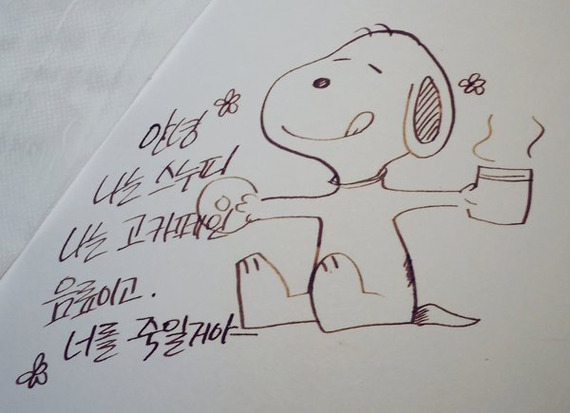 안녕
나는 스누피
나는 고카페인
음료이고.
너를 죽일거야